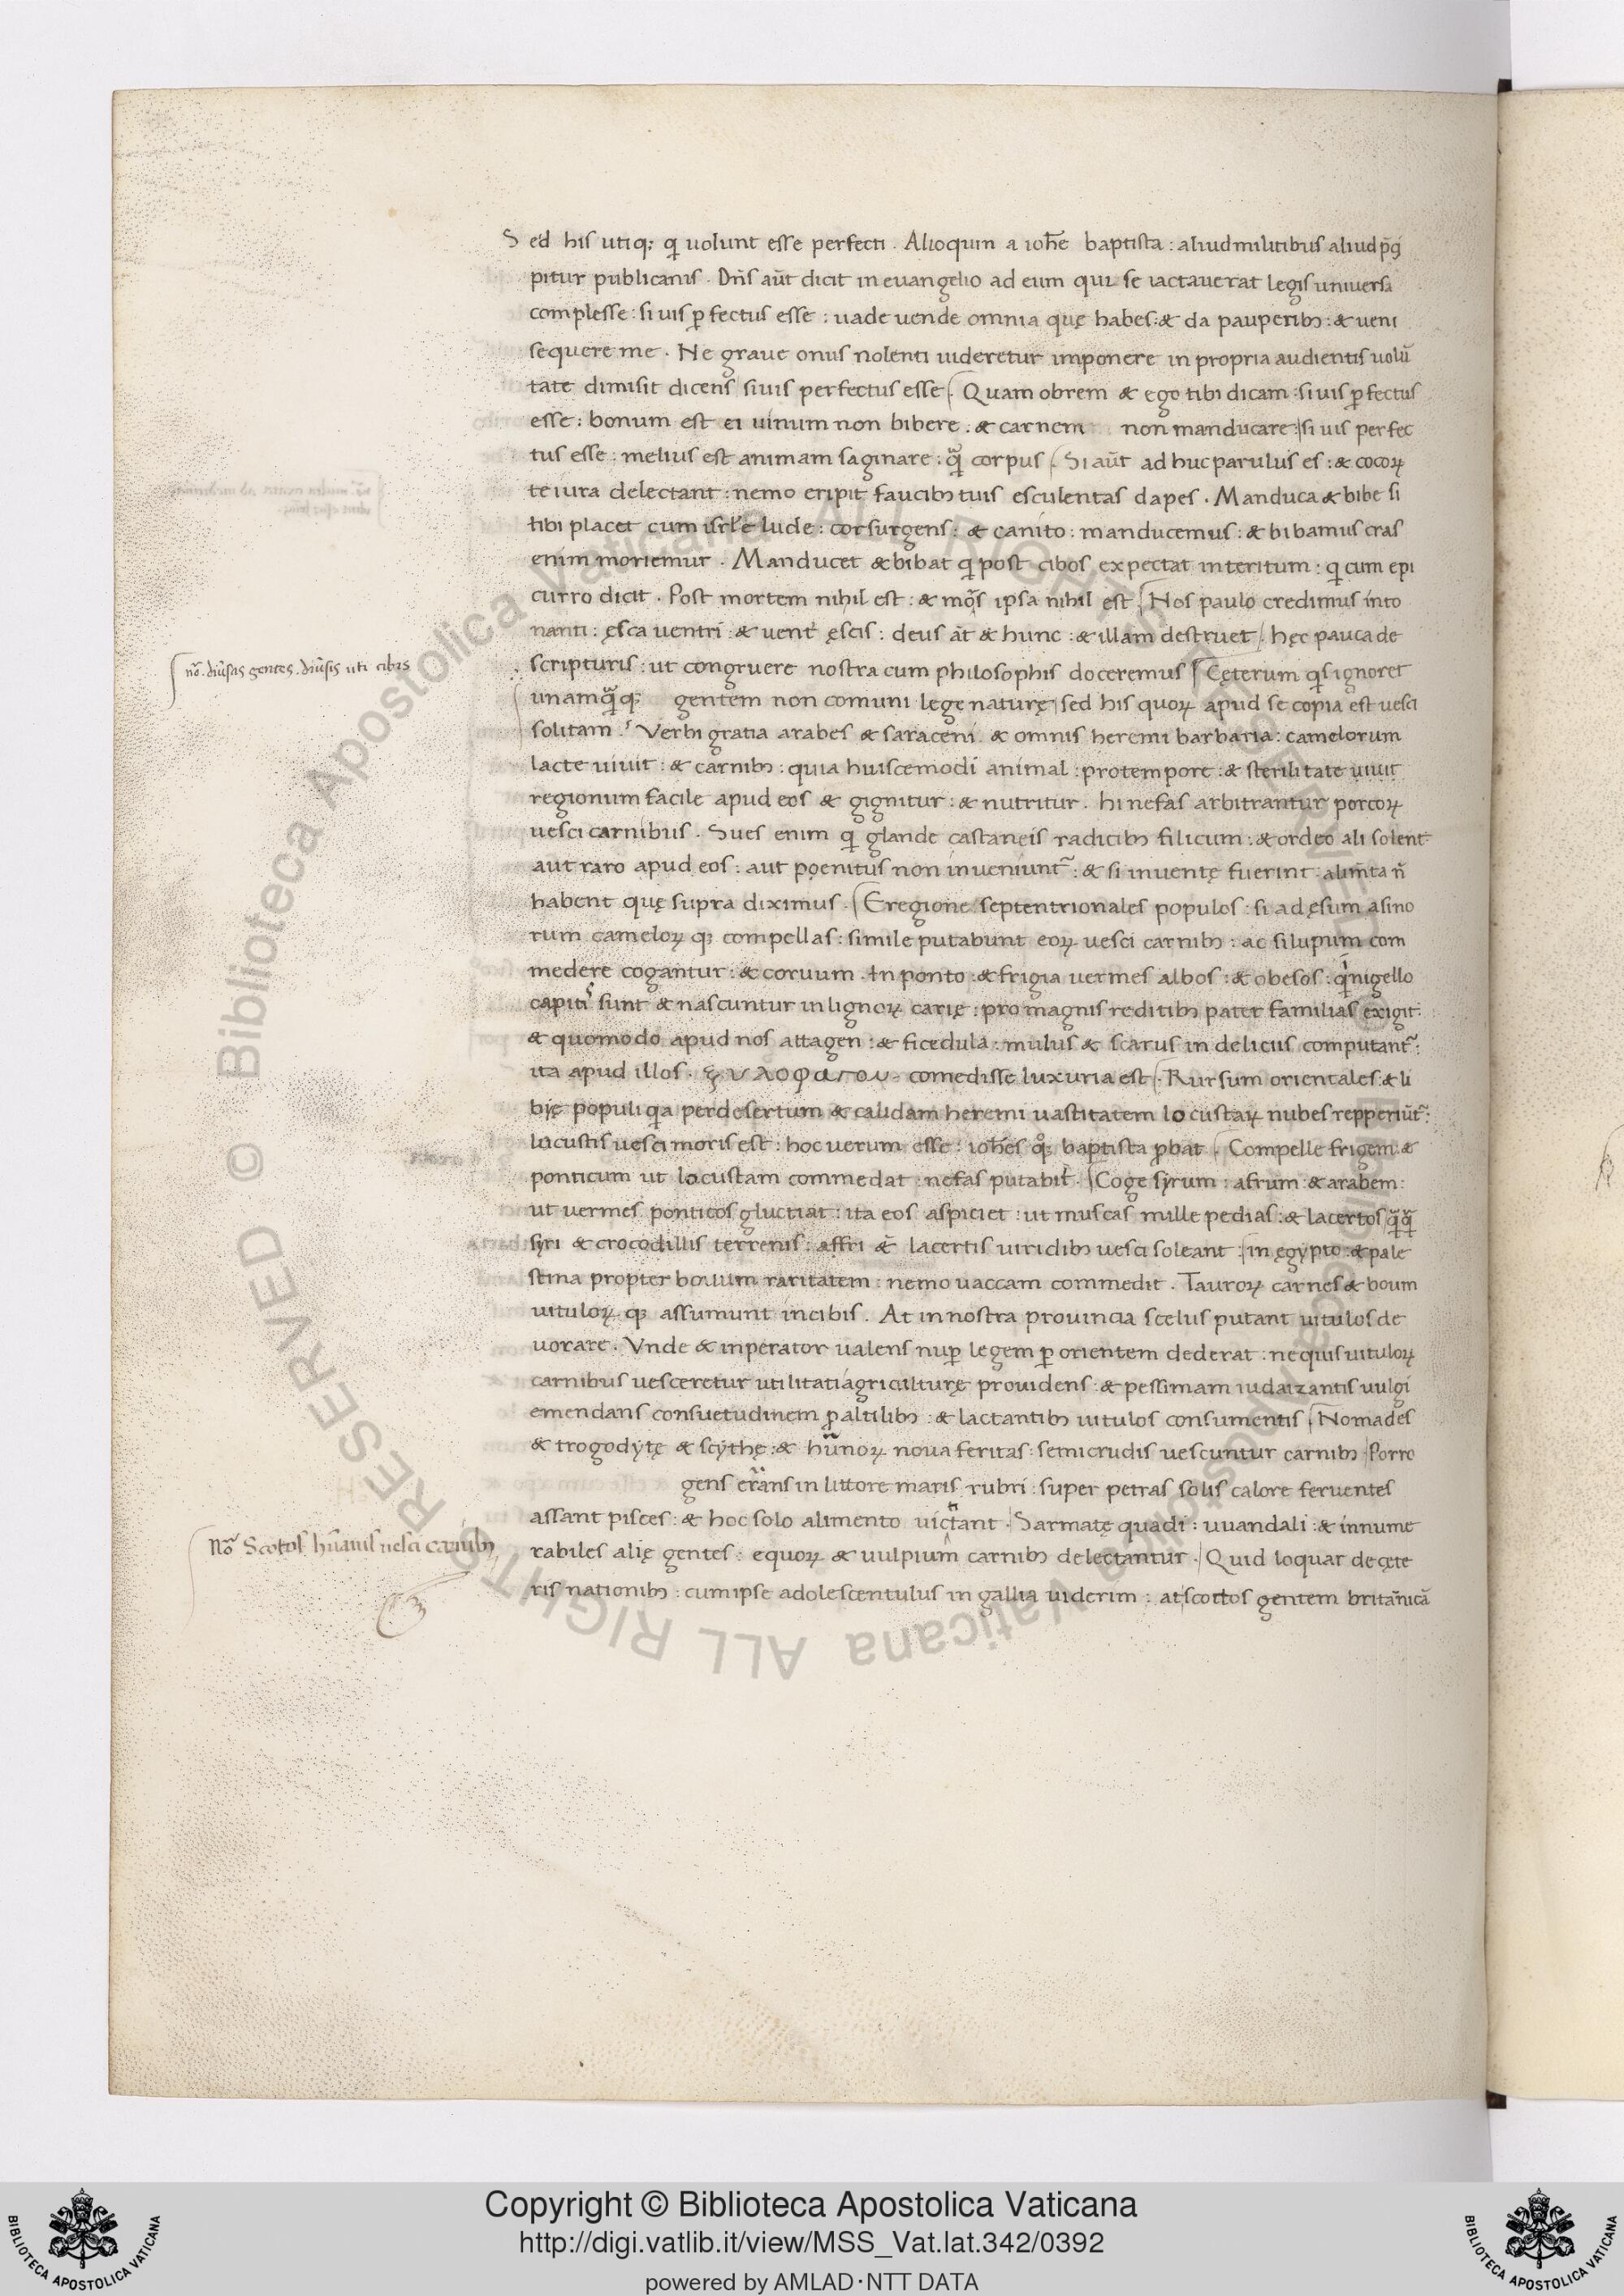 Sed his utiq; qͥ uolunt esse perfecti . Alioquin a ioħe baptista : aliud militibus aliud p̄ci
pitur publicanis . Dn̄s aūt dicit in euangelio ad eum qui se iactauerat legis uniuersa
complesse : si uis ꝑfectus esse : uade uende omnia quę habes : & da pauperibꝫ : & ueni
sequere me . Ne graue onus nolenti uideretur imponere in propria audientis uolū
tate dimisit dicens si uis perfectus esse . Quam obrem & ego tibi dicam : si uis ꝑfectus
esse : bonum est ei uinum non bibere : & carnem non manducare : si uis perfec
tus esse : melius est animam saginare : qͣ̄ corpus . Si aūt ad huc paruulus es : & cocoꝝ
te iura delectant : nemo eripit faucibꝫ tuis esculentas dapes . Manduca & bibe si
tibi placet cum isrł'e lude : corsurgens : & canito : manducemus : & bibamus cras
enim moriemur . Manducet & bibat qͥ post cibos expectat interitum : qͥ cum epi
curro dicit . Post mortem nihil est : & moͬs ipsa nihil est . Nos paulo credimus into
nanti : ęsca uentri : & uent̄ ęscis : deus aūt & hunc : & illam destruet . hęc pauca de
scripturis : ut congruere nostra cum philosophis doceremus . Cęterum qͥs ignoret
unamqͣ̄q; gentem non comuni lege naturę sed his quoꝝ apud se copia est uesci
solitam . Verbi gratia arabes & saraceni & omnis heremi barbaria : camelorum
lacte uiuit : & carnibꝫ : quia huiscemodi animal : pro tempore : & sterilitate uiuit
regionum facile apud eos & gignitur : & nutritur . hi nefas arbitrantur porcoꝝ
uesci carnibus . Sues enim qͥ glande castaneis radicibꝫ filicum : & ordeo ali solent
aut raro apud eos : aut poenitus non inueniunt᷑ : & si inuentę fuerint alim̄ta n̄
habent quę supra diximus . E regione septentrionales populos : si ad ęsum asino
rum cameloꝝ q; compellas : simile putabunt eoꝝ uesci carnibꝫ : ac si lupum com
medere cogantur : & coruum . In ponto : & frigia uermes albos : & obesos : qͥ nigello
capitͬ sunt & nascuntur in lignoꝝ carię : pro magnis reditibꝫ pater familias exigit
& quomodo apud nos attagen : & ficedula : mulus & scarus in deliciis computant᷑ :
ita apud illos . ξυλοφαγου . comedisse luxuria est . Rursum orientales & li
bię populi qͥa per desertum & calidam heremi uastitatem locustaꝝ nubes repperiūt᷑ :
locustis uesci moris est : hoc uerum esse : ioħes qͦq; baptista ꝓbat . Compelle frigem &
ponticum ut locustam commedat : nefas putabit . Coge syrum : afrum : & arabem :
ut uermes ponticos gluctiat : ita eos aspiciet : ut muscas mille pedias : & lacertos qͣ̄qͣ̄
syri & crocodillis terrenis : affri & lacertis uiridibꝫ uesci soleant : in ęgypto : & pale
stina propter bouum raritatem : nemo uaccam commedit . Tauroꝝ carnes & boum
uituloꝝ q; assumunt in cibis . At in nostra prouincia scelus putant uitulos de
uorare . Vnde & inperator ualens nuꝑ legem ꝑ orientem dederat : nequis uituloꝝ
carnibus uesceretur utilitati agriculturę prouidens : & pessimam iudaizantis uulgi
emendans consuetudinem ꝓ altilibꝫ : & lactantibꝫ uitulos consumentis . Nomades
& trogodytę & scythę : & hūnoꝝ noua feritas : semicrudis uescuntur carnibꝫ . Porro
gens errans in littore maris rubri : super petras solis calore feruentes
assant pisces : & hoc solo alimento uictant . Sarmatę quadi : uuandali : & innume
rabiles alię gentes : equoꝝ & uulpium carnibꝫ delectantur . Quid loquar de cęte
ris nationibꝫ : cum ipse adolescentulus in gallia uiderim : atscottos gentem britan̄icā
no᷑. diūsas gentes. diūsis uti cibis
No᷑ Scotos hūanis uesci carnibꝫ
Copyright © Biblioteca Apostolica Vaticana
http://digi.vatlib.it/view/MSS_Vat.lat.342/0392
powered by AMLAD·NTT DATA
BIBLIOTECA APOSTOLICA VATICANA
BIBLIOTECA APOSTOLICA VATICANA
© Biblioteca Apostolica Vaticana ALL RIGHTS RESERVED
© Biblioteca Apostolica Vaticana ALL RIGHTS RESERVED